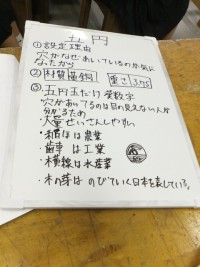 五円
①設定理由
穴がなぜあいているのか気に
なったから
②材質黄銅 重さ3.75g
③五円玉だけ漢数字
穴があいてるのは目の見えない人が
分かるため
・大量せいさんしやすい
・稲ほは農業
・歯車は工業
・横線は水産業
・木の芽はのびていく日本を表している。